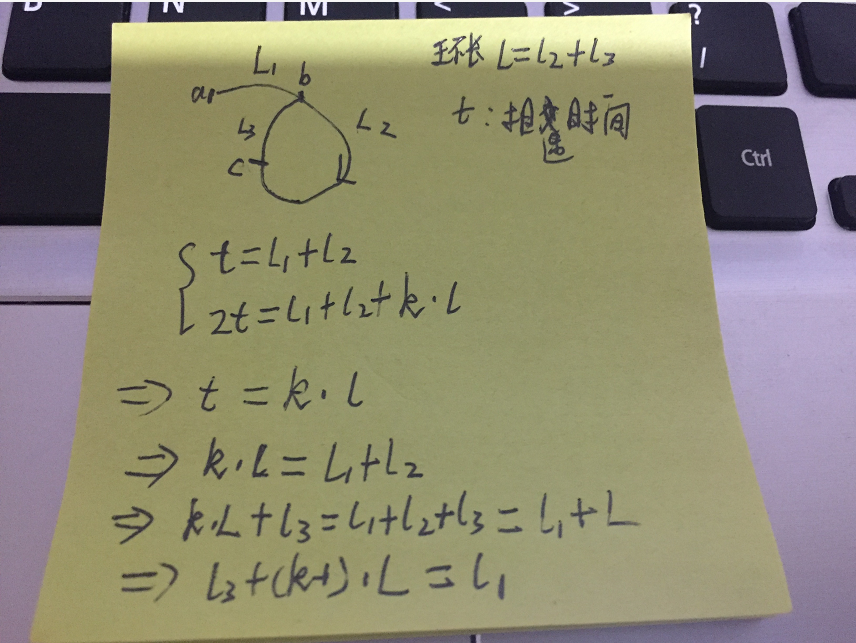 N M < > ? /
Ctrl
L₁ b
a
L₃ L₂
c
环长 L=l₂+l₃
t:相遇时间
t=l₁+l₂
2t=l₁+l₂+k·l
⇒ t=k·l
⇒ k·L=L₁+l₂
⇒ k·L+l₃=l₁+l₂+l₃=l₁+L
⇒ l₃+(k-1)·L=l₁